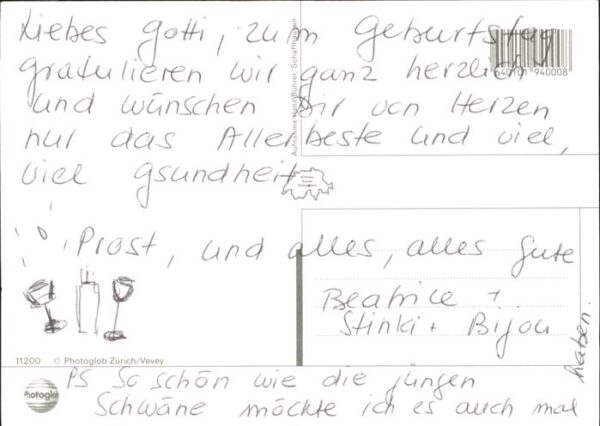 Liebes Gotti, zum Geburtstag
gratulieren wir ganz herzlich
und wünschen Dir von Herzen
nur das Allerbeste und viel,
viel gsundheit
Prost, und alles, alles Gute
Beatrice +
Stinki + Bijou
PS So schön wie die jungen
Schwäne möchte ich es auch mal
haben.
640101 940008
11200 © Photoglob Zürich/Vevey
Photoglob